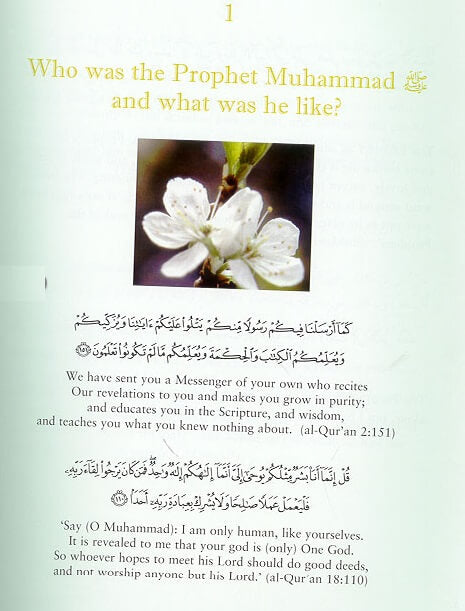 1
Who was the Prophet Muhammad ﷺ
and what was he like?
كَمَآ أَرْسَلْنَا فِيكُمْ رَسُولًا مِّنكُمْ يَتْلُوا۟ عَلَيْكُمْ ءَايَٰتِنَا وَيُزَكِّيكُمْ
وَيُعَلِّمُكُمُ ٱلْكِتَٰبَ وَٱلْحِكْمَةَ وَيُعَلِّمُكُم مَّا لَمْ تَكُونُوا۟ تَعْلَمُونَ ﴿١٥١﴾
We have sent you a Messenger of your own who recites
Our revelations to you and makes you grow in purity;
and educates you in the Scripture, and wisdom,
and teaches you what you knew nothing about. (al-Qur'an 2:151)
قُلْ إِنَّمَآ أَنَا۠ بَشَرٌ مِّثْلُكُمْ يُوحَىٰٓ إِلَىَّ أَنَّمَآ إِلَٰهُكُمْ إِلَٰهٌ وَٰحِدٌ ۖ فَمَن كَانَ يَرْجُوا۟ لِقَآءَ رَبِّهِۦ
فَلْيَعْمَلْ عَمَلًا صَٰلِحًا وَلَا يُشْرِكْ بِعِبَادَةِ رَبِّهِۦٓ أَحَدًۢا ﴿١١٠﴾
'Say (O Muhammad): I am only human, like yourselves.
It is revealed to me that your god is (only) One God.
So whoever hopes to meet his Lord should do good deeds,
and not worship anyone but his Lord.' (al-Qur'an 18:110)